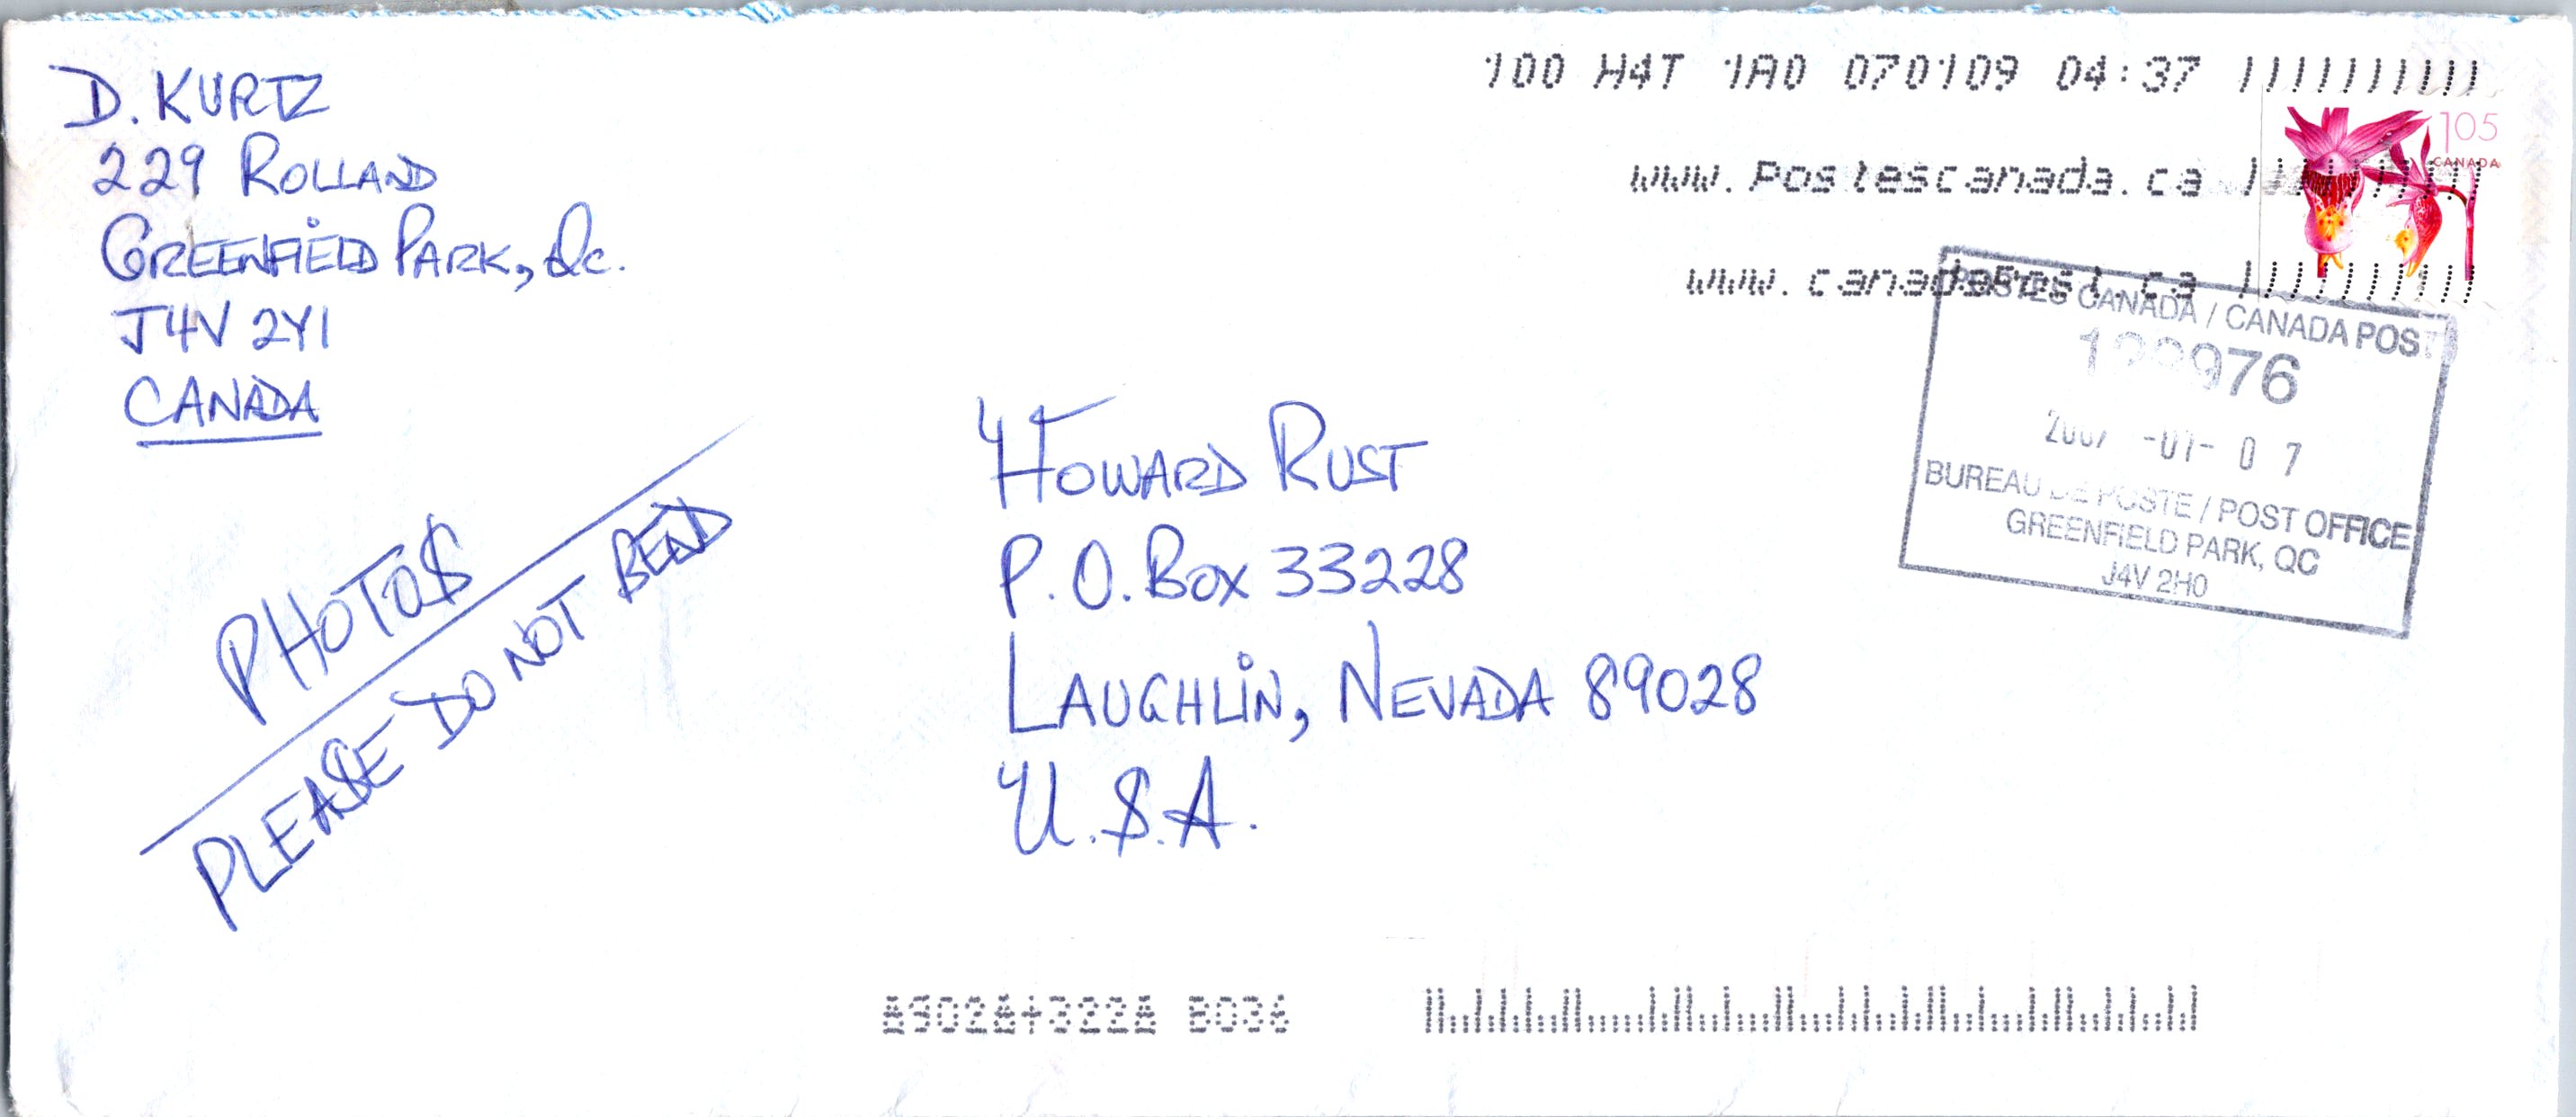 D. KURTZ
229 ROLLAND
GREENFIELD PARK, Qc.
J4V 2Y1
CANADA
100 H4T 1A0 070109 04:37
www.postescanada.ca
www.canadapost.ca
105
CANADA
POSTES CANADA / CANADA POST
2007 -01- 07
BUREAU DE POSTE / POST OFFICE
GREENFIELD PARK, QC
J4V 2H0
HOWARD RUST
P.O. BOX 33228
LAUGHLIN, NEVADA 89028
U.S.A.
PHOTOS
PLEASE DO NOT BEND